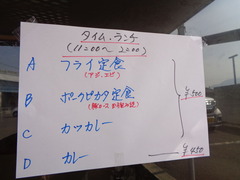 タイム・ランチ
(11:00〜2:00)
A フライ定食
(アジ、エビ)
B ポークピカタ定食
(豚ロース お強み込)
C カツカレー
D カレー